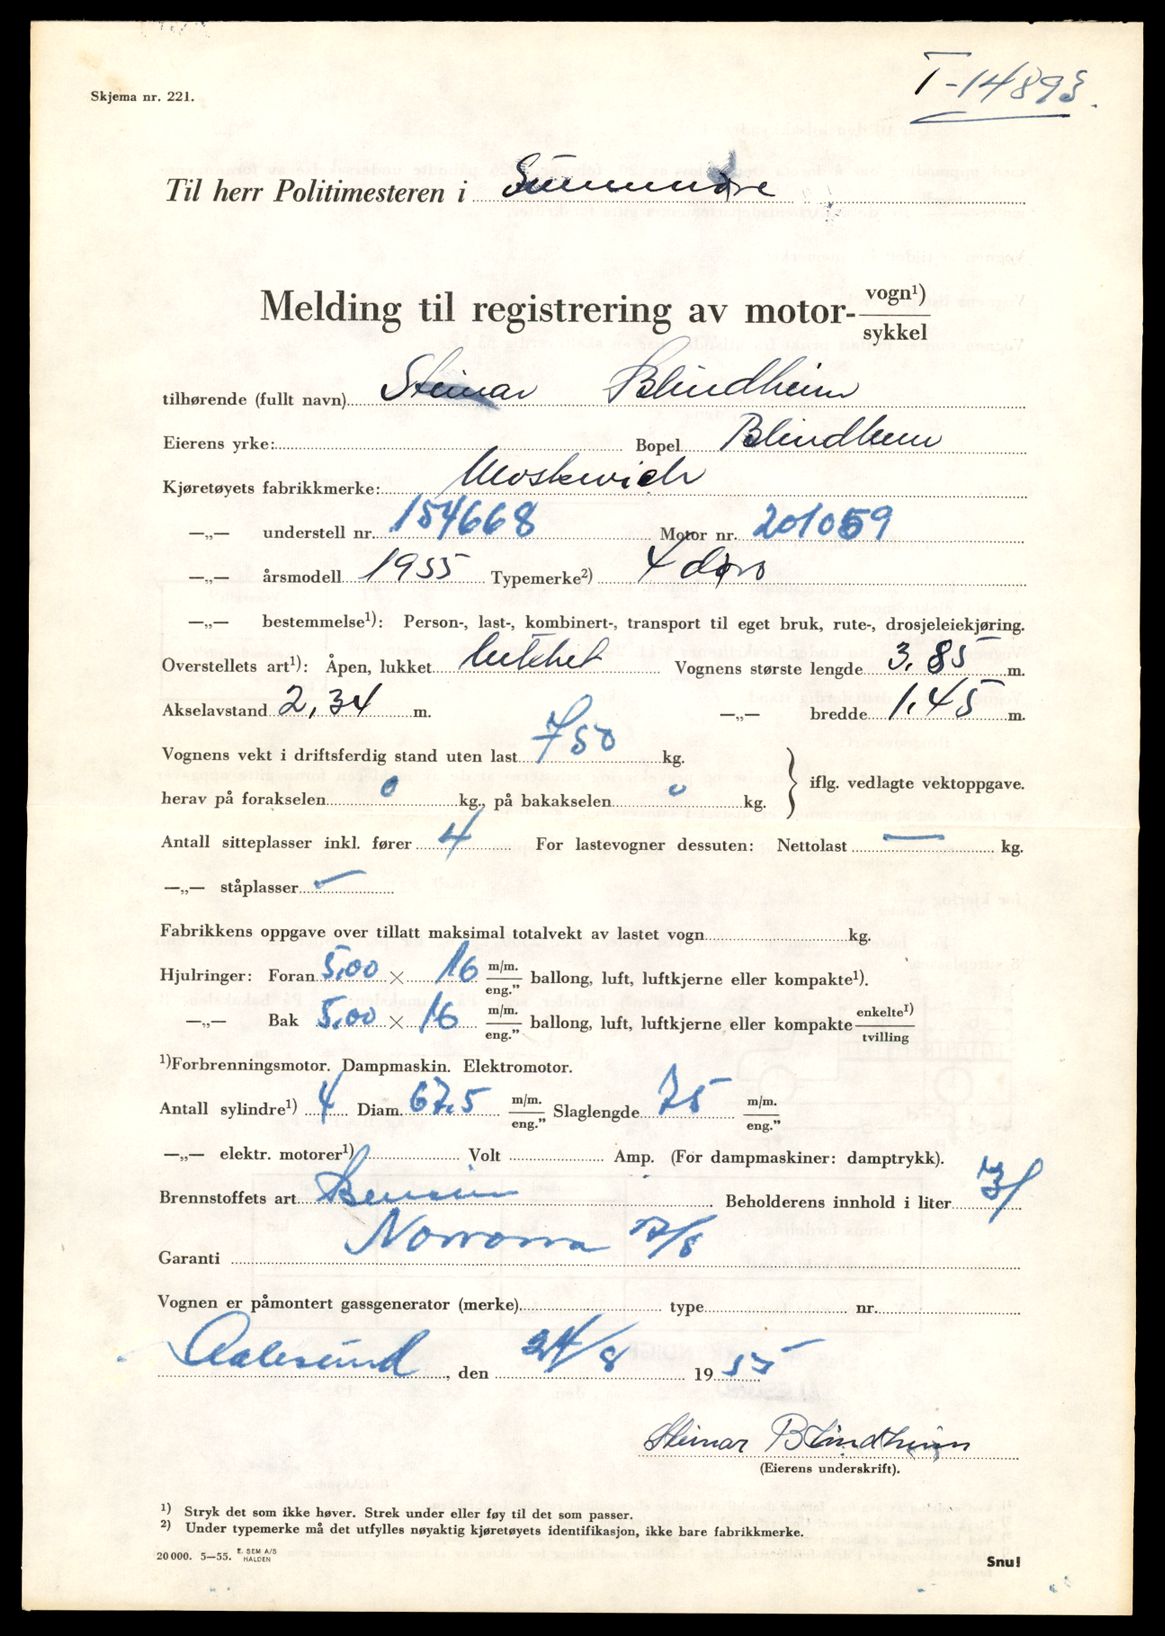 T-14893.
Skjema nr. 221.
Til herr Politimesteren i Sunnmøre
Melding til registrering av motor- vogn¹) sykkel
tilhørende (fullt navn) Steinar Blindheim
Eierens yrke: Bopel Blindheim
Kjøretøyets fabrikkmerke: Moskwich
—„— understell nr. 154668 Motor nr. 201059
—„— årsmodell 1955 Typemerke²) 4 dørs
—„— bestemmelse¹): Person-, last-, kombinert-, transport til eget bruk, rute-, drosjeleiekjøring.
Overstellets art¹): Åpen, lukket lukket Vognens største lengde 3,85 m.
Akselavstand 2,34 m. —„— bredde 1,45 m.
Vognens vekt i driftsferdig stand uten last 750 kg.
herav på forakselen 0 kg., på bakakselen 0 kg. } iflg. vedlagte vektoppgave.
Antall sitteplasser inkl. fører 4 For lastevogner dessuten: Nettolast — kg.
—„— ståplasser
Fabrikkens oppgave over tillatt maksimal totalvekt av lastet vogn kg.
Hjulringer: Foran 5,00 × 16 m/m. eng.” ballong, luft, luftkjerne eller kompakte¹).
—„— Bak 5,00 × 16 m/m. eng.” ballong, luft, luftkjerne eller kompakte enkelte¹) tvilling
¹)Forbrenningsmotor. Dampmaskin. Elektromotor.
Antall sylindre¹) 4 Diam. 67,5 m/m. eng.” Slaglengde 75 m/m. eng.”
—„— elektr. motorer¹) Volt Amp. (For dampmaskiner: damptrykk).
Brennstoffets art Bensin Beholderens innhold i liter 31
Garanti Norrona
Vognen er påmontert gassgenerator (merke) type nr.
Aalesund, den 24/8 1955
Steinar Blindheim
(Eierens underskrift).
¹) Stryk det som ikke høver. Strek under eller føy til det som passer.
²) Under typemerke må det utfylles nøyaktig kjøretøyets identifikasjon, ikke bare fabrikkmerke.
20 000. 5—55. E. SEM A/S HALDEN
Snu!